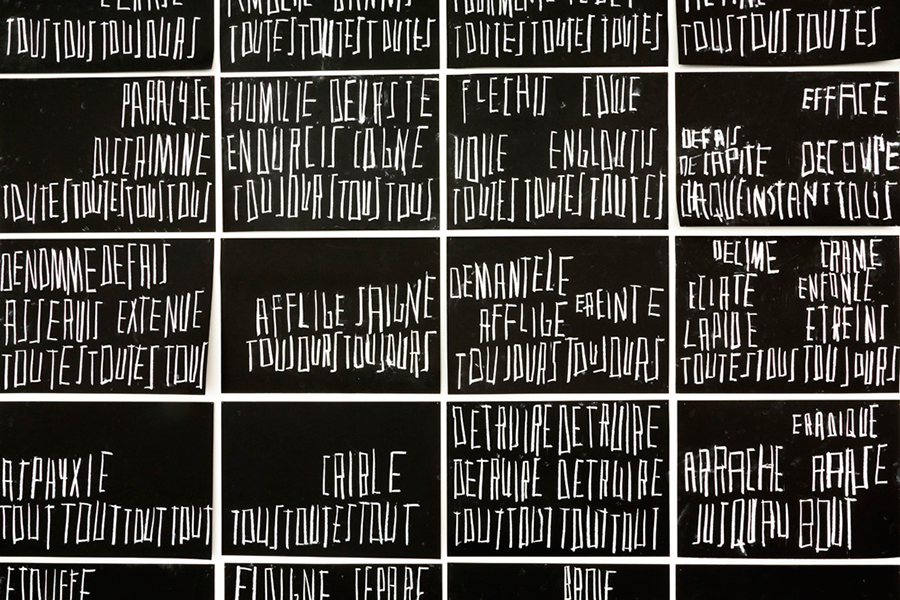 TOUSTOUSTOUJOURS
TOUTESTOUTESTOUTES
TOUTESTOUTESTOUTES
TOUSTOUSTOUTES
PARALYSE
DISCRIMINE
TOUTESTOUTESTOUSTOUS
HUMILIE DEVASTE
ENDURCIS COGNE
TOUJOURSTOUSTOUS
FLECHIS COULE
VOILE ENGLOUTIS
TOUTESTOUTESTOUTES
EFFACE
DEFAIS
DECAPITE DECOUPE
CHAQUEINSTANTTOUS
DENOMME DEFAIS
ASSERVIS EXTENUE
TOUTESTOUTESTOUS
AFFLIGE SAIGNE
TOUJOURSTOUJOURS
DEMANTELE
AFFLIGE EREINTE
TOUJOURSTOUJOURS
DECIME CRAME
ECLATE ENFONCE
LAPIDE ETREINS
TOUTESTOUSTOUJOURS
ASPHYXIE
TOUTTOUTTOUTTOUT
CRIBLE
TOUSTOUTESTOUT
DETRUIREDETRUIRE
DETRUIRE DETRUIRE
TOUTTOUTTOUTTOUT
ERADIQUE
ARRACHE ARASE
JUSQUAU BOUT
ETOUFFE
ELOIGNE SEPARE